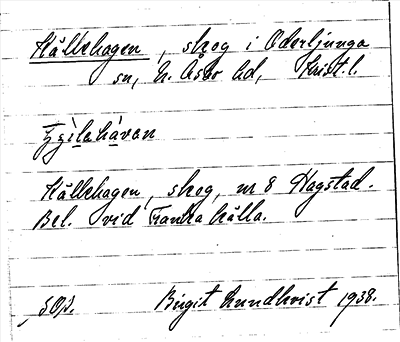 Källehagen, skog i Oderljunga
sn, N. Åsbo hd, Krist. l.
Källehagen, skog, nr 8 Hagstad.
Bel. vid Franka källa.
Birgit Lundkvist 1938.